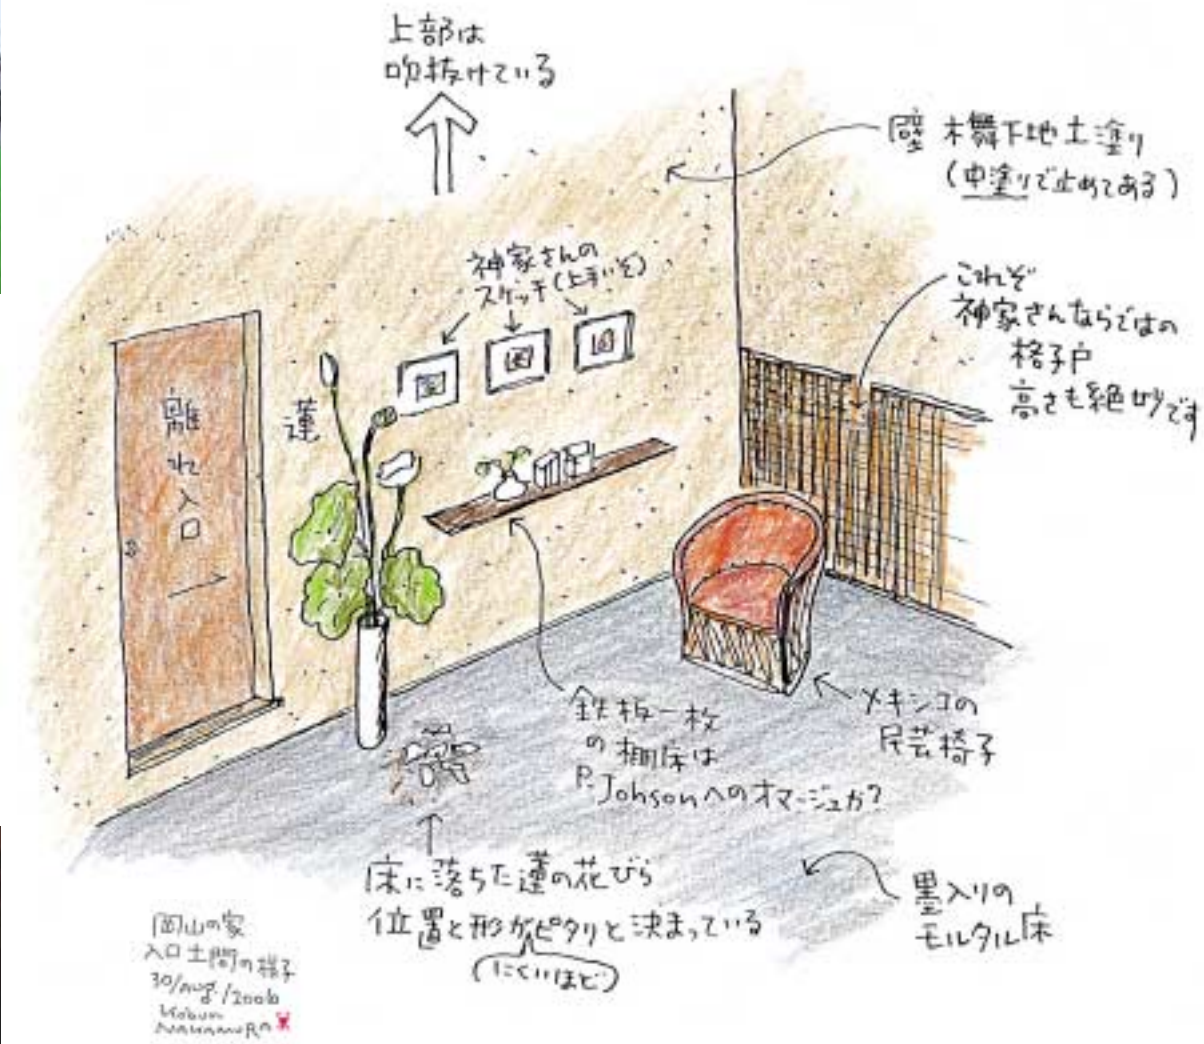 上部は
吹抜けている
壁 木舞下地土塗り
(中塗りで止めてある)
神家さんの
スケッチ(上手いぞ)
これぞ
神家さんならではの
格子戸
高さも絶妙です
離れ入口
蓮
鉄板一枚
の棚床は
P.Johsonへのオマージュか?
メキシコの
民芸椅子
床に落ちた蓮の花びら
位置と形がピタリと決まっている
(にくいほど)
墨入りの
モルタル床
岡山の家
入口土間の様子
30/Aug./2006
Kobun
NAKAMURA